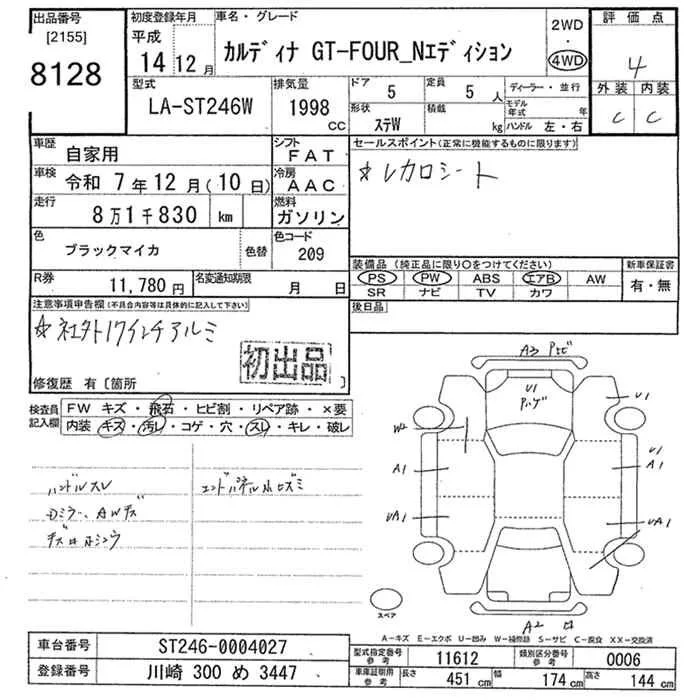 出品番号
[2155]
8128
初度登録年月
平成
14 12 月
車名・グレード
カルディナ GT-FOUR_Nエディション
2WD
・
4WD
評価点
4
外装 内装
C C
型式
LA-ST246W
排気量
1998
CC
ドア
5
定員
5 人
ディーラー・並行
形状
ステW
積載
kg
モデル年式 年
ハンドル 左・右
車歴
自家用
シフト
FAT
車検
令和 7年12月(10日)
冷房
AAC
走行
8万1千830 km
燃料
ガソリン
色
ブラックマイカ
色替
色コード
209
R券
11,780円
名変通知期限
月 日
セールスポイント(正常に機能するものに限ります)
☆レカロシート
装備品 (純正品に限り○をつけてください)
新車保証書
PS PW ABS エアB AW
SR ナビ TV カワ
有・無
後日品
注意事項申告欄(不具合内容等は具体的に記入して下さい)
☆社外17インチアルミ
初出品
修復歴 有〔箇所 〕
検査員記入欄
FW キズ・飛石・ヒビ割・リペア跡・×要
内装 キズ・汚レ・コゲ・穴・スレ・キレ・破レ
ハンドルスレ
Dミラー、AWキズ
エンドパネル
A3
U1
U1
W2
A1
U1
A1
UA1
UA1
A2
スペア
A－キズ E－エクボ U－凹み W－補修跡 S－サビ C－腐食 XX－交換済
車台番号
ST246-0004027
登録番号
川崎 300 め 3447
型式指定番号
参考
11612
類別区分番号
参考
0006
車庫証明用
参考
長さ
451 cm
幅
174 cm
高さ
144 cm